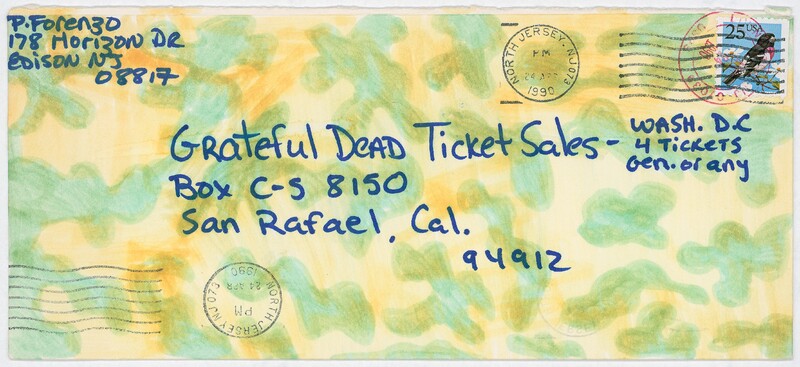 P. Forenzo
178 Horizon DR
edison NJ
08817
NORTH JERSEY, NJ 073
PM
24 APR
1990
25 USA
Grateful DeAD Ticket Sales -
Box C-S 8150
San Rafael, Cal.
94912
WASH. D.C
4 Tickets
Gen. or any
NORTH JERSEY NJ 073
PM
24 APR
1990